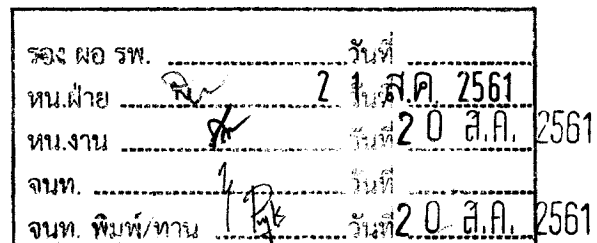 รอง ผอ รพ. .................... วันที่ ....................
หน.ฝ่าย .................... วันที่ 21 ส.ค. 2561
หน.งาน .................... วันที่ 20 ส.ค. 2561
จนท. .................... วันที่ ....................
จนท. พิมพ์/ทาน .................... วันที่ 20 ส.ค. 2561